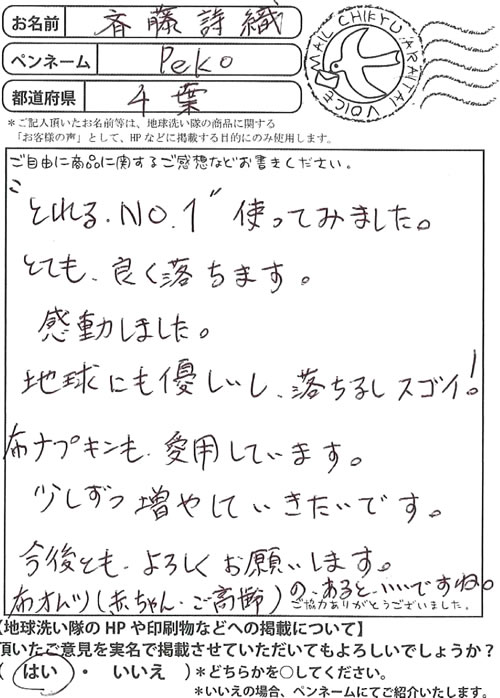 お名前 斉藤 詩織
ペンネーム Peko
都道府県 千葉
MAIL CHIKYU ARAITAI VOICE
*ご記入頂いたお名前等は、地球洗い隊の商品に関する
「お客様の声」として、HPなどに掲載する目的にのみ使用します。
ご自由に商品に関するご感想などお書きください。
"とれる.NO.1"使ってみました。
とても、良く落ちます。
感動しました。
地球にも優しいし、落ちるしスゴイ!
布ナプキンも、愛用しています。
少しずつ増やしていきたいです。
今後とも、よろしくお願いします。
布オムツ(赤ちゃん・ご高齢)の、あると、いいですね。
ご協力ありがとうございました。
【地球洗い隊のHPや印刷物などへの掲載について】
頂いたご意見を実名で掲載させていただいてもよろしいでしょうか?
( はい ・ いいえ )*どちらかを○してください。
*いいえの場合、ペンネームにてご紹介いたします。